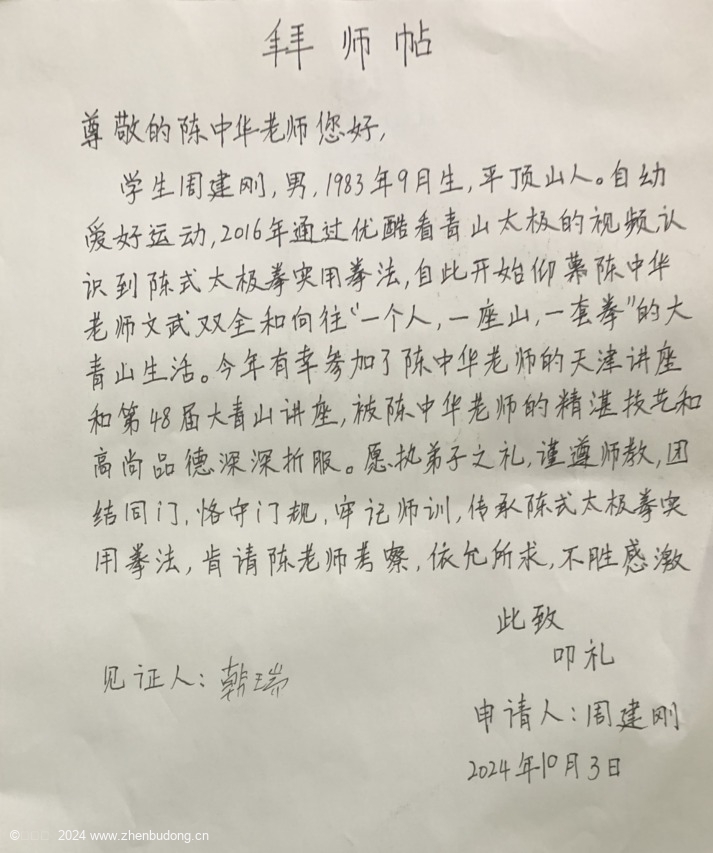 拜师帖
尊敬的陈中华老师您好,
学生周建刚,男,1983年9月生,平顶山人。自幼
爱好运动,2016年通过优酷看青山太极的视频认
识到陈式太极拳实用拳法,自此开始仰慕陈中华
老师文武双全和向往“一个人,一座山,一套拳”的大
青山生活。今年有幸参加了陈中华老师的天津讲座
和第48届大青山讲座,被陈中华老师的精湛技艺和
高尚品德深深折服。愿执弟子之礼,谨遵师教,团
结同门,恪守门规,牢记师训,传承陈式太极拳实
用拳法,肯请陈老师考察,依允所求,不胜感激
此致
叩礼
见证人:韩瑞
申请人:周建刚
2024年10月3日
2024 www.zhenbudong.cn